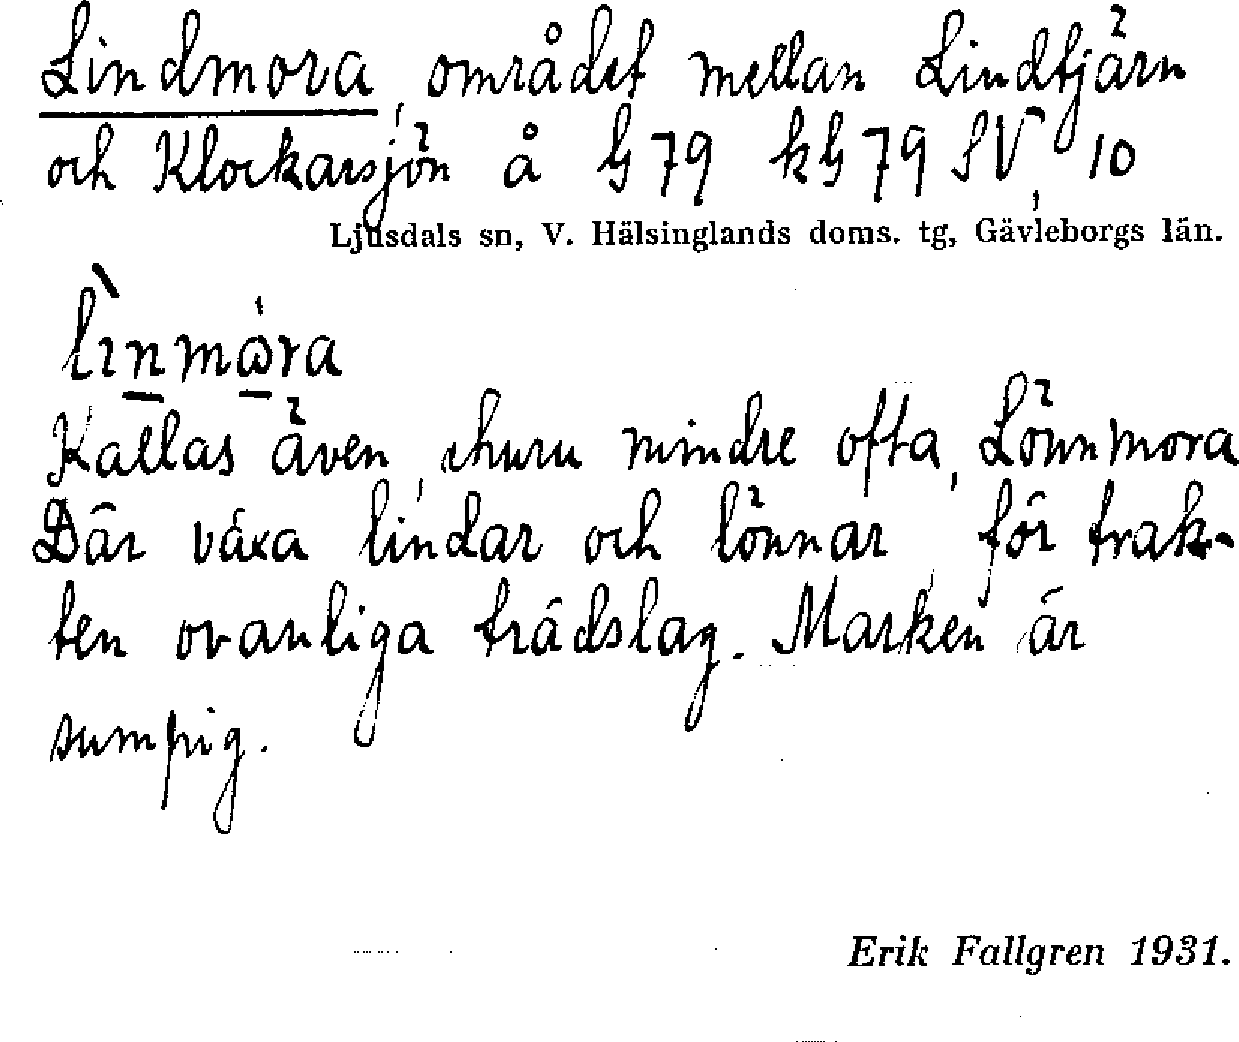 Lindmora, området mellan Lindtjärn
och Klockarsjön å G 79 kG 79 SV, 10
Ljusdals sn, V. Hälsinglands doms. tg, Gävleborgs län.
Kallas även, ehuru mindre ofta, Lönnmora
Där växa lindar och lönnar, för trak-
ten ovanliga trädslag. Marken är
sumpig.
Erik Fallgren 1931.